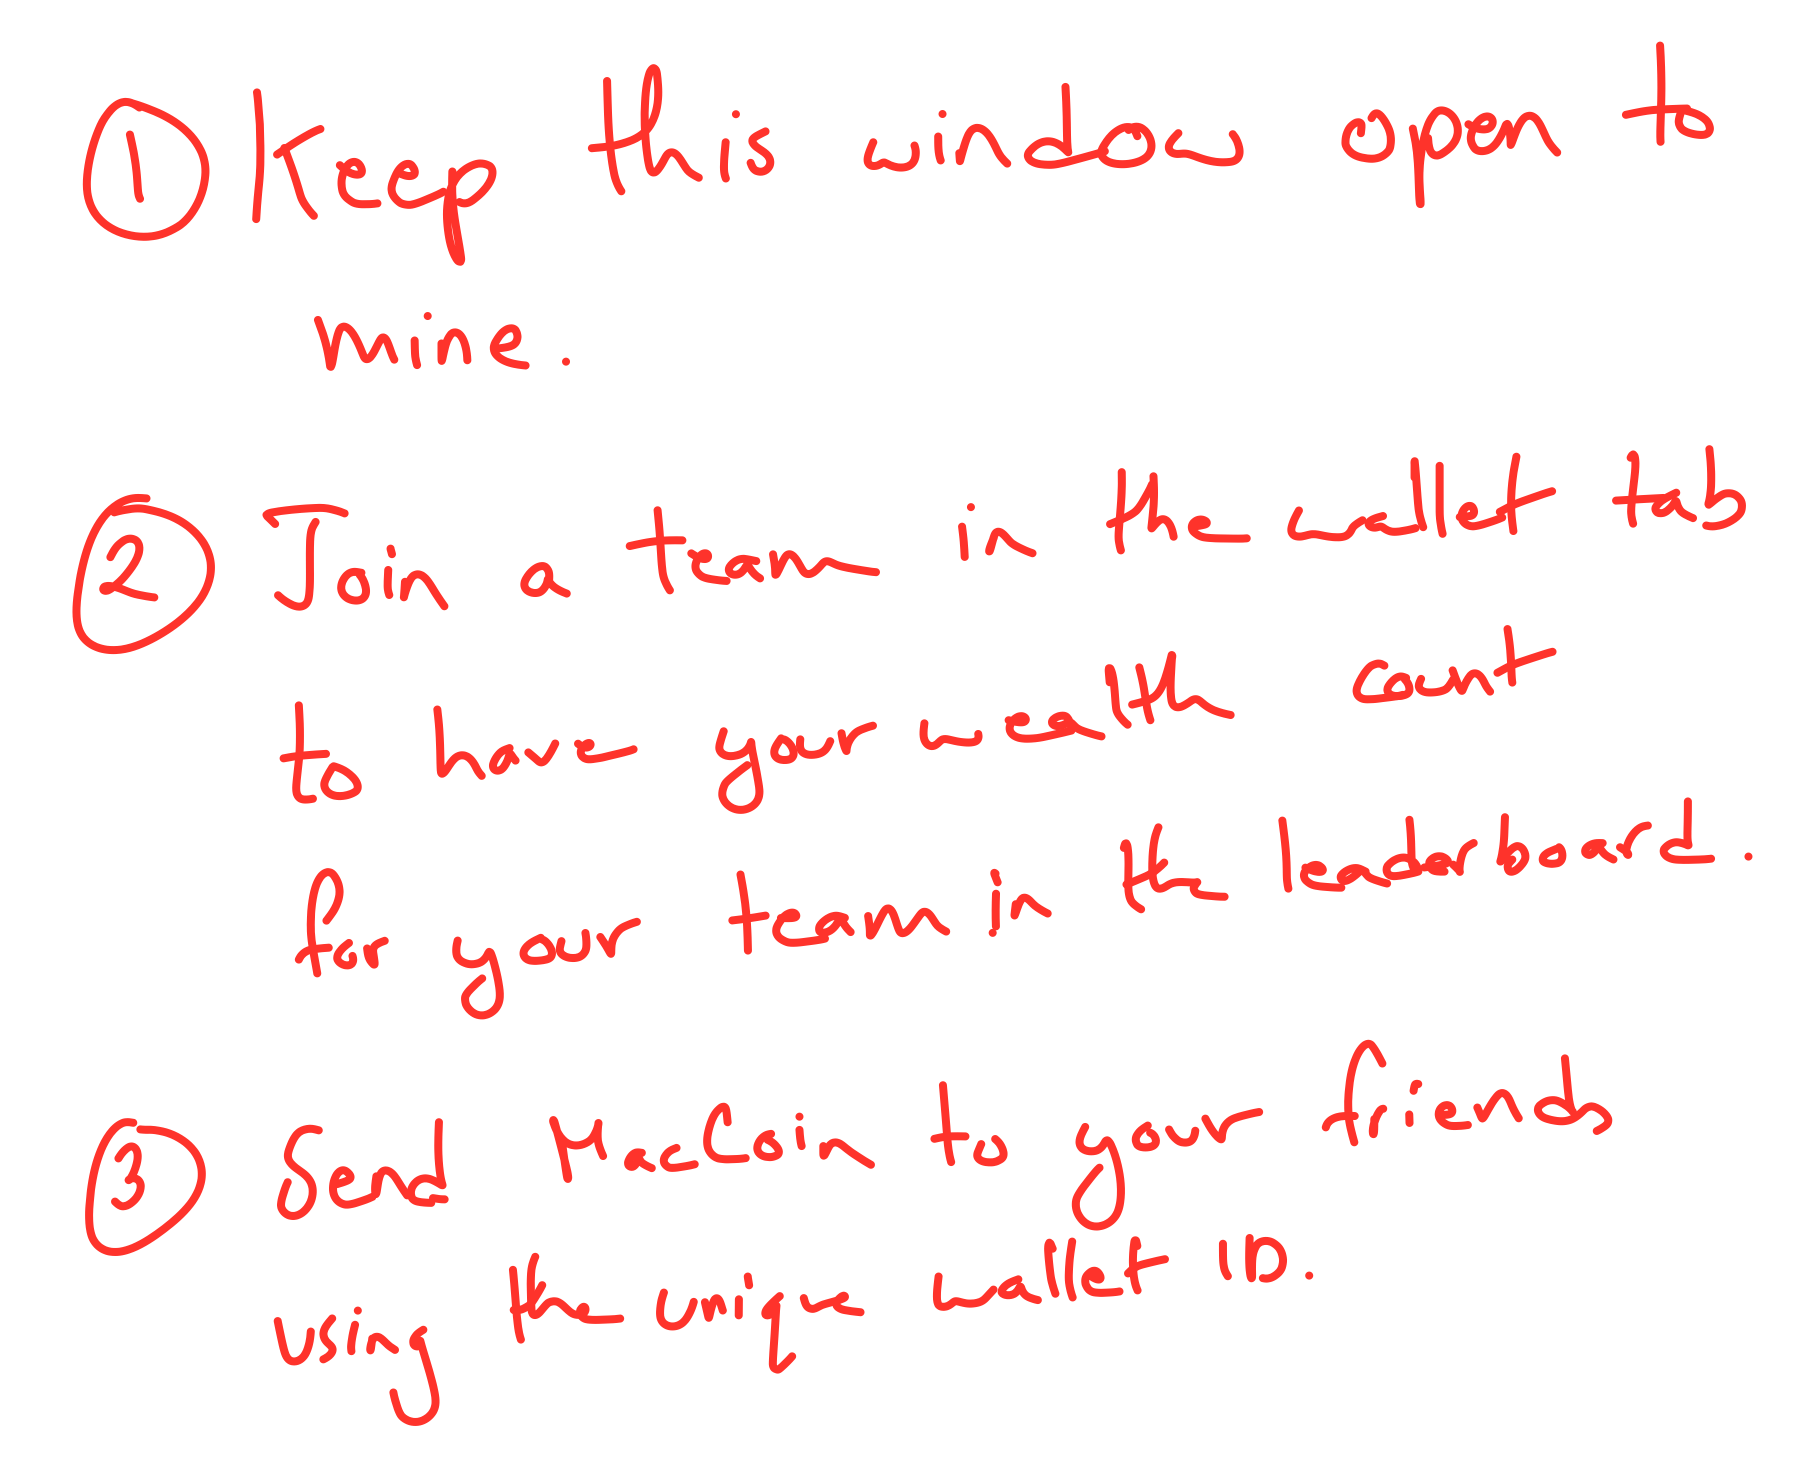 1 Keep this window open to
mine.
2 Join a team in the wallet tab
to have your wealth count
for your team in the leaderboard.
3 Send MacCoin to your friends
using the unique wallet ID.